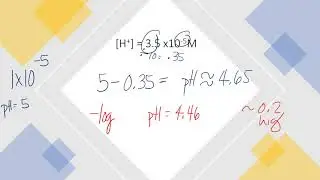 [H⁺] = 3.5 x10⁻⁵ M
÷10 = .35
1x10⁻⁵
pH = 5
5 - 0.35 = pH ≈ 4.65
-log pH = 4.46 ~0.2
high